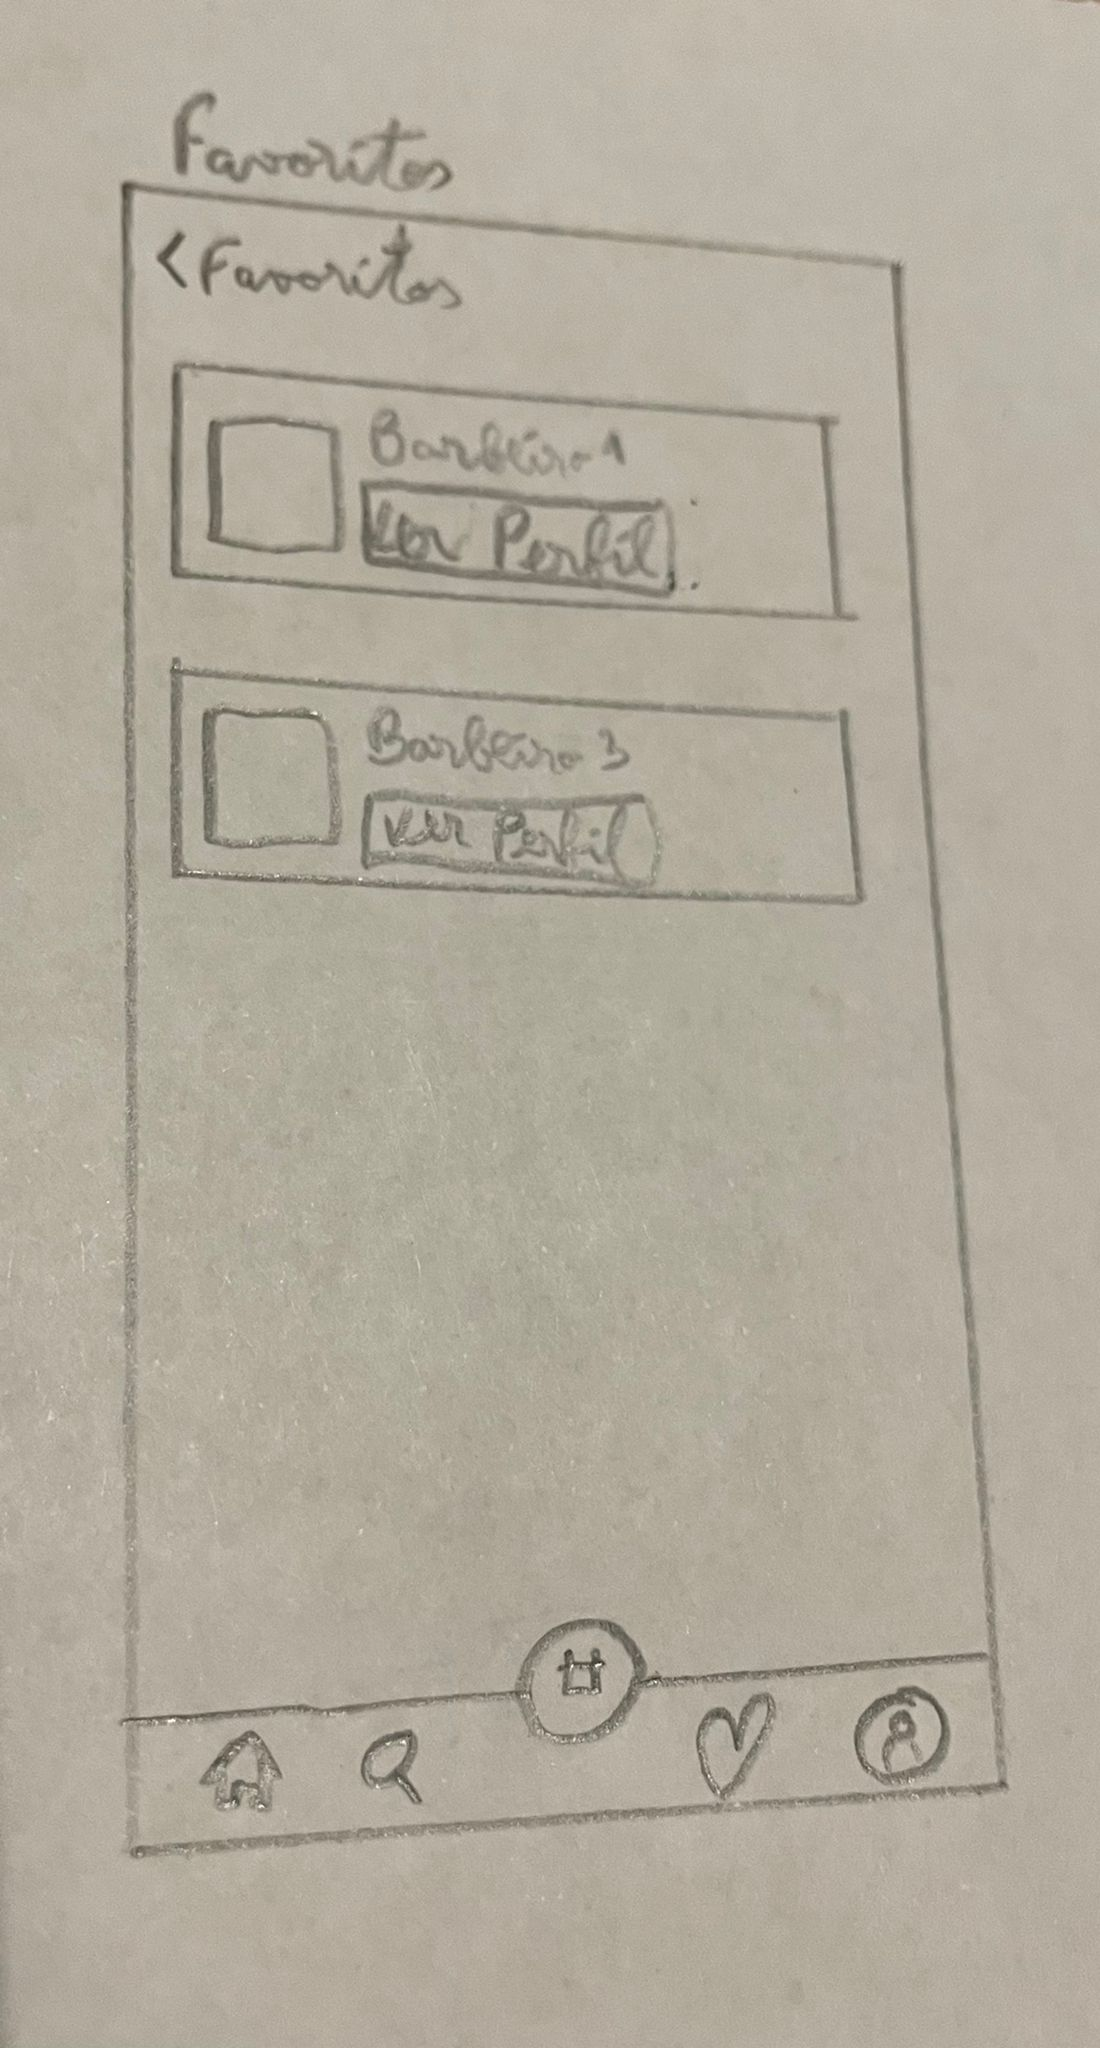 Favoritos
< Favoritos
Barbeiro 1
Ver Perfil
Barbeiro 3
Ver Perfil